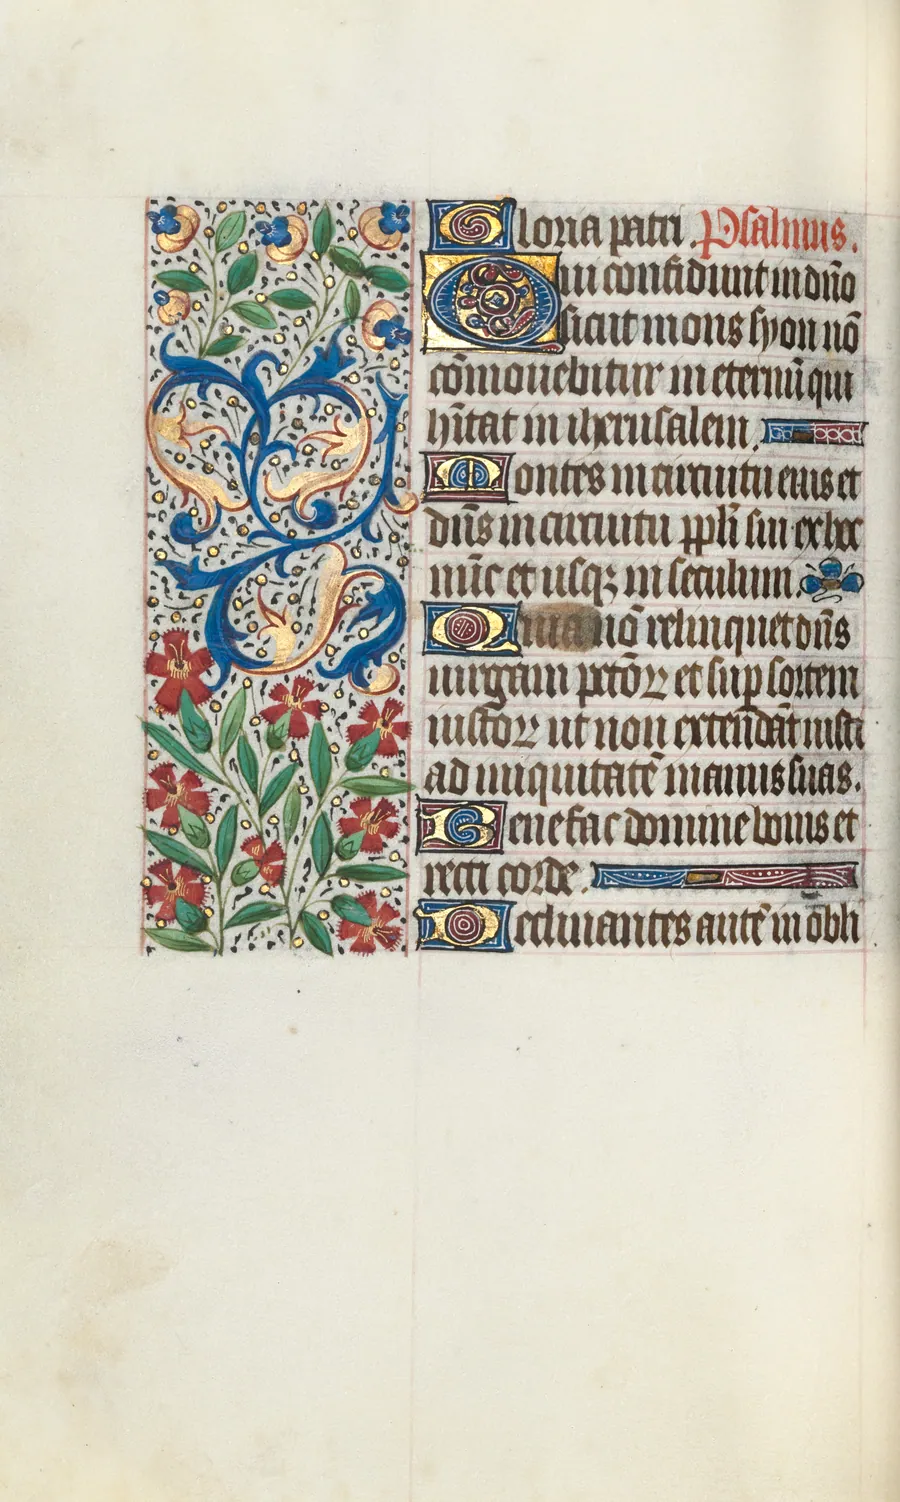 Gloria patri. Psalmus.
Qui confidunt in dño
sicut mons syon nō
cōmouebitur in eternū qui
hītat in iherusalem.
Montes in circuitu eius et
dñs in circuitu ppli sui ex hoc
nūc et usqꝫ in seculum.
Quia nō relinquet dñs
uirgam pctōꝝ et sup sortem
iustoꝝ ut non extendāt iusti
ad iniquitatē manus suas.
Benefac domine bonis et
recti corde.
Declinantes autē in obli